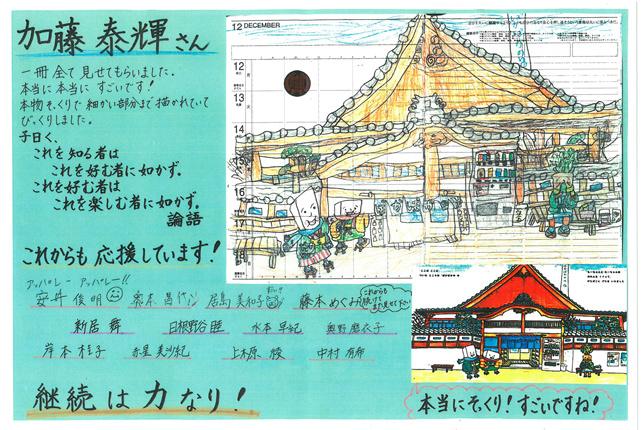 加藤 泰輝さん
一冊全て見せてもらいました。
本当に本当にすごいです！
本物そっくりで細かい部分まで描かれていて
びっくりしました。
子曰く、
これを知る者は
これを好む者に如かず。
これを好む者は
これを楽しむ者に如かず。
論語
これからも応援しています！
アッパレー アッパレー!!
安井 俊明
居島 美和子
藤本 めぐみ
これからも
新居 舞
日根野谷 睦
水本 早紀
奥野 磨衣子
岸本 桂子
赤星 美沙紀
上木原 綾
中村 有希
継続は力なり！
12 DECEMBER
12
13
14
15
16
17
18
本当にそっくり！すごいですね！